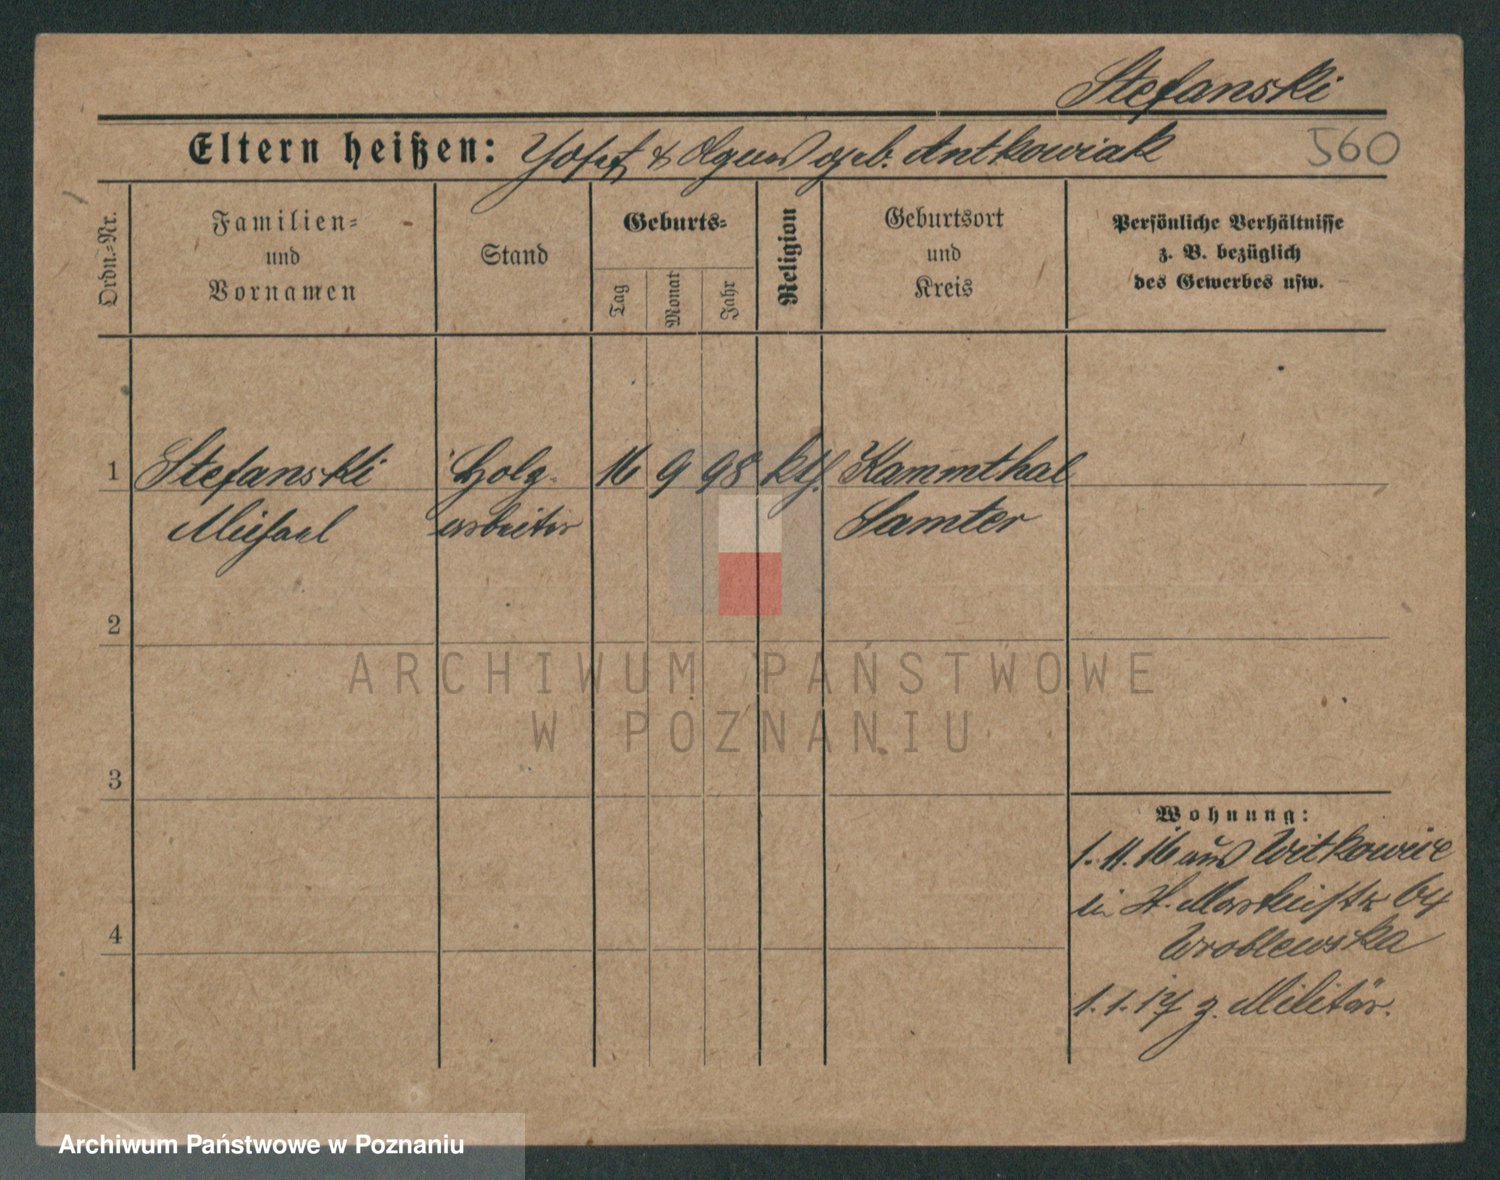 Stefanski
Eltern heißen: Josef & Agnes geb. Antkowiak
560
Ordn.-Nr.
Familien-
und
Vornamen
Stand
Geburts-
Tag
Monat
Jahr
Religion
Geburtsort
und
Kreis
Persönliche Verhältnisse
z. B. bezüglich
des Gewerbes usw.
1 Stefanski Holz- 16 9 98 kth. Kammthal
Michael arbeiter Samter
2
3
4
Wohnung:
1. 11. 16 aus Witkowice
in St. 64
Wroblewska
1. 1. 17 z. Militär.
ARCHIWUM PAŃSTWOWE
W POZNANIU
Archiwum Państwowe w Poznaniu